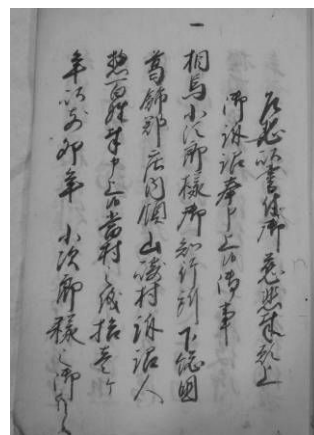 乍恐以書付御慈悲奉願上
御訴訟奉申上候御事
一
相馬小次郎様御知行所下総国
葛飾郡庄内領山崎村訴訟人
惣百姓奉申上候当村之儀拾壱ヶ
年以前卯年小次郎様江御